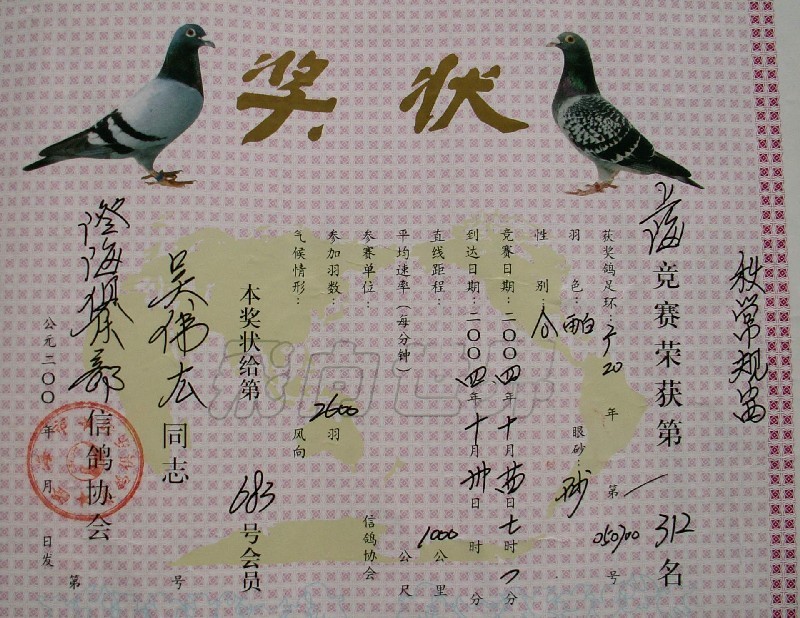 奖状
秋常规
竞赛荣获第312名
获奖鸽足环:广20年 第一050300号
羽色:雨白 眼砂:砂
性别:
竞赛日期:二〇〇四年十月日七时分
到达日期:二〇〇四年十月卅日 时 分
直线距程:1000公里
平均速率(每分钟) 公尺
参赛单位: 信鸽协会
参加羽数:2600羽
气候情形: 风向
本奖状给第683号会员
吴伟同志
澄海俱乐部信鸽协会
公元二〇〇 年 月 日发 第 号